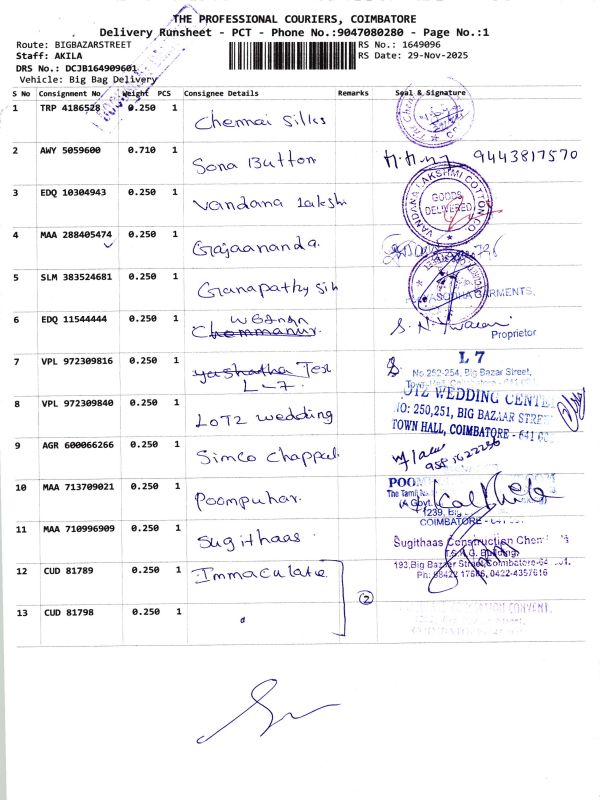 THE PROFESSIONAL COURIERS, COIMBATORE
Delivery Runsheet - PCT - Phone No.:9047080280 - Page No.:1
Route: BIGBAZARSTREET
Staff: AKILA
DRS No.: DCJB164909601
Vehicle: Big Bag Delivery
RS No.: 1649096
RS Date: 29-Nov-2025
S No Consignment No Weight PCS Consignee Details Remarks Seal & Signature
1 TRP 4186528 0.250 1 Chennai Silks
2 AWY 5059600 0.710 1 Sona Button 9443817570
3 EDQ 10304943 0.250 1 Vandana Lakshi
VANDANA LAKSHMI COTTON CO.
GOODS
DELIVERED
4 MAA 288405474 0.250 1 Gajaananda.
5 SLM 383524681 0.250 1 Ganapathy sih
GARMENTS.
6 EDQ 11544444 0.250 1
Proprietor
7 VPL 972309816 0.250 1 Tex
L-7.
L 7
No.252-254, Big Bazar Street,
8 VPL 972309840 0.250 1 LOTZ wedding
WEDDING CENTRE
NO: 250,251, BIG BAZAAR STREET
TOWN HALL, COIMBATORE - 641 001
9 AGR 600066266 0.250 1 Simco chappal.
10 MAA 713709021 0.250 1 Poompuhar.
The Tamil
(A Govt.
1239, Big
COIMBATORE
11 MAA 710996909 0.250 1 Sugithaas.
Sugithaas Construction Chem
T.S.N.G. Building,
193,Big Bazaar Street,Coimbatore-64 .01.
Ph: 98422 17586, 0422-4357616
12 CUD 81789 0.250 1 Immaculate
2
13 CUD 81798 0.250 1 "
CONVENT.